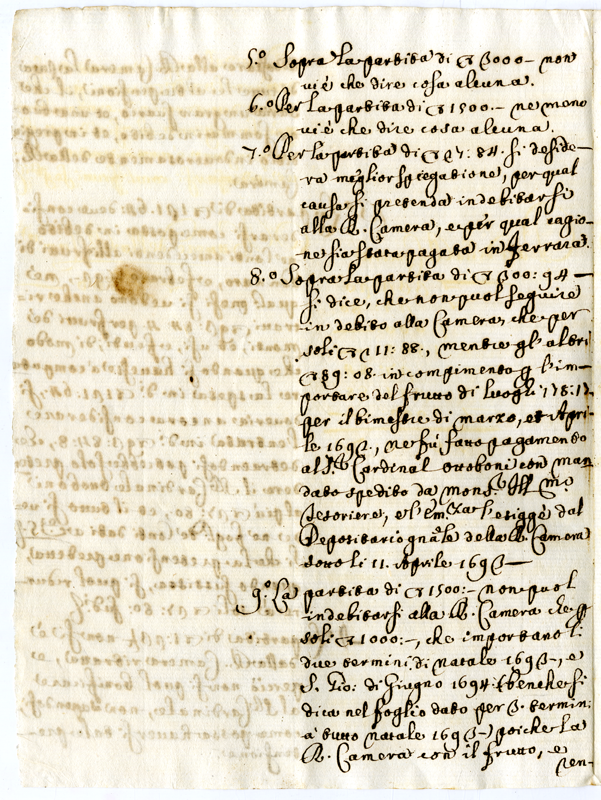 5.º Sopra la partita di ∇ 3000 – non
vi é che dire cosa alcuna.
6.º Per la partita di ∇ 1500.– ne meno
vi é che dire cosa alcuna.
7.º Per la partita di ∇ 27: 84. si deside–
ra meglior spiegatione, per qual
causa si pretenda indebitarsi
alla R. Camera, e per qual ragio–
ne sia stata pagata in Ferrara.
8.º Sopra la partita di ∇ 300: 94 –
si dice, che non puol seguire
in debito alla Camera, che per
soli ∇ 211: 88., mentre gl'altri
∇ 89: 08. in compimento
portare del frutto di luoghi 178:
per il bimestre di marzo, et Apri–
le 1693., ne fù fatto pagamento
al Sr. Cardinal Ottoboni con man
dato spedito da Mons.r Ill.mo
Tesoriere, e l'Em.za S. esiggè dal
Depositario gn̄ale della R. Camera
sotto li 11. Aprile 1693 –
9.º La partita di ∇ 1500:– non puol
indebitarsi alla R. Camera che p̄
soli ∇ 1000:–, che importano li
due termini di natale 1693–, e
S. Gio: di Giugno 1694: (benche si
dica nel foglio dato per 3. termini
à tutto natale 1693–) poiche la
R. Camera con il frutto, e
ren–